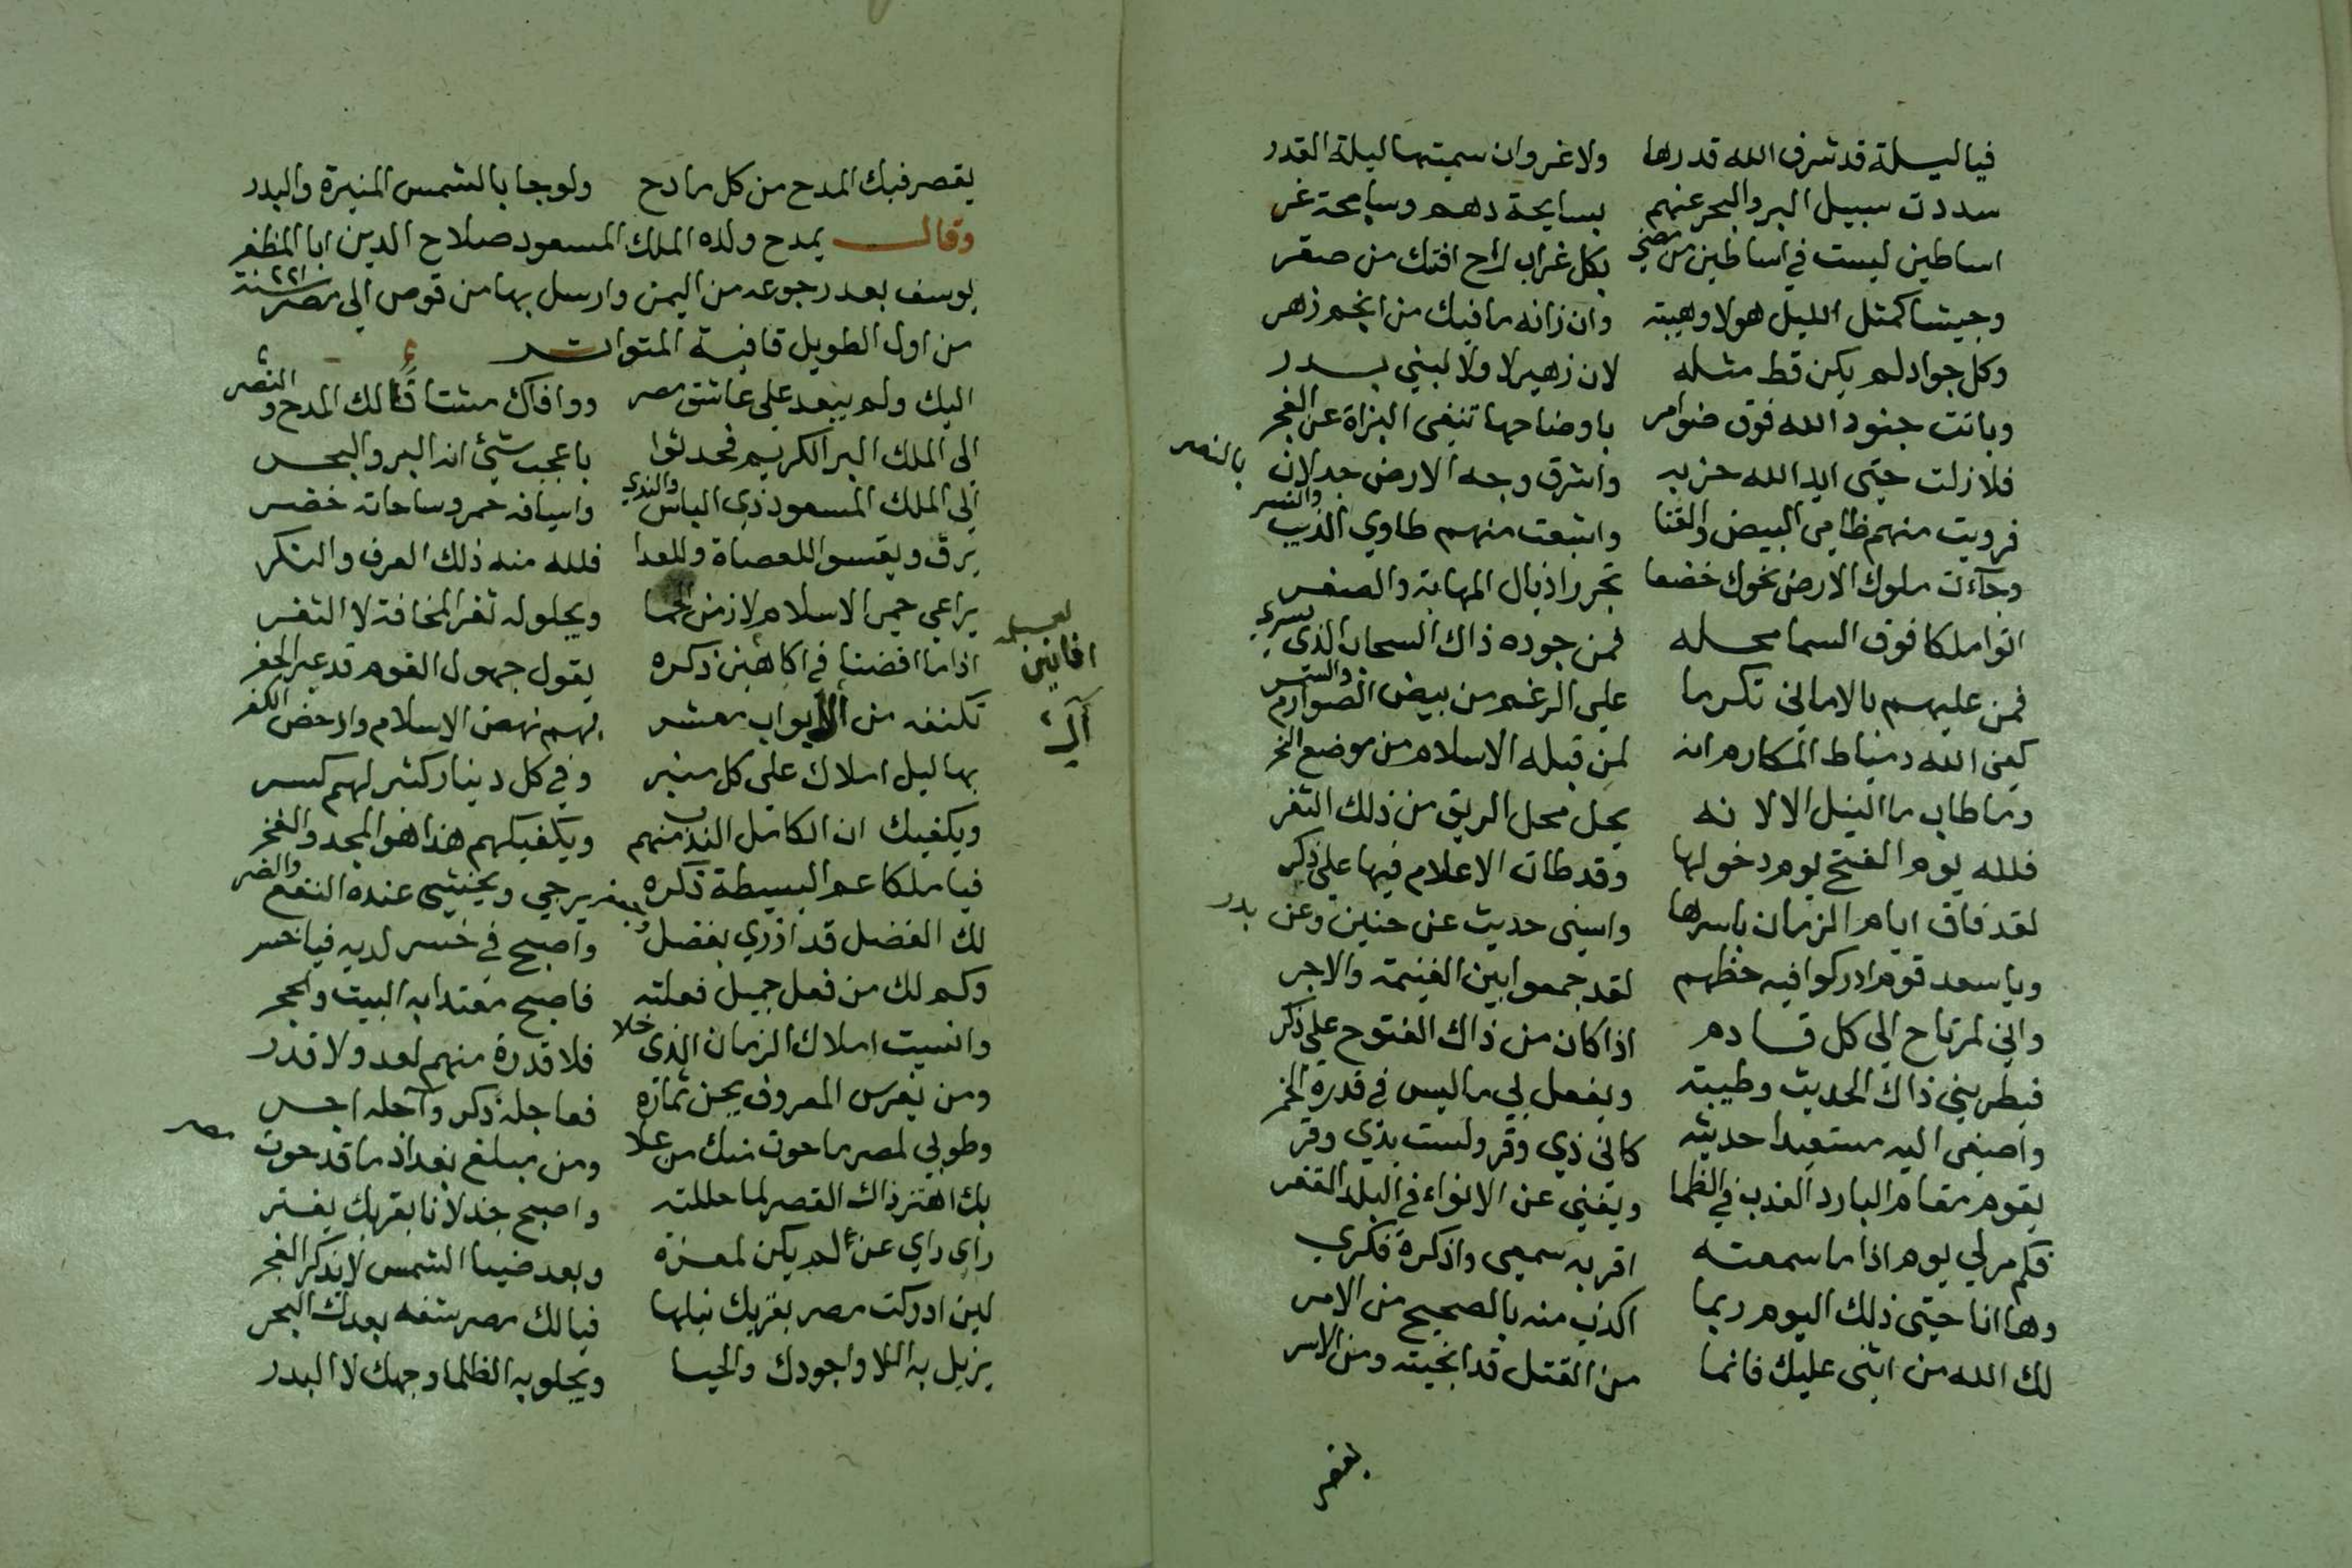 فيا ليلة قد شرف الله قدرها ولا غروان سميتها ليلة القدر
سددت سبيل البر والبحر عنهم بسابحة دهم وسابحة غر
اساطين ليست في اساطين من مضي بكل غراب راح افتك من صقر
وجيشا كمثل الليل هولا وهيبة وان زانه ما فيك من انجم زهر
وكل جواد لم يكن قط مثله لان زهير لا ولا لبني بدر
وباتت جنود الله فوق ضوامر باوضاحها تغني البزاة عن الفجر
فلا زلت حتى ايد الله حزبه واشرق وجه الارض جدلان بالنصر
فرويت منهم ظامي البيض والقنا واشبعت منهم طاوي الذيب والنسر
وجآءت ملوك الارض نحوك خضعا تجرر اذيال المهابة والصغر
اتوا ملكا فوق السما محله فمن جوده ذاك السحاب الذي يسري
فمن عليهم بالاماني تكرما علي الرغم من بيض الصوارم والسمر
كفى الله دمياط المكاره انه لمن قبله الاسلام من موضع النحر
وما طاب ما النيل الا لانه يحل محل الريق من ذلك الثغر
فلله يوم الفتح يوم دخولها وقد طات الاعلام فيها علي ذكر
لقد فاق ايام الزمان باسرها وانسى حديث عن حنين وعن بدر
ويا سعد قوم ادركوا فيه حظهم لقد جمعوا بين الغنيمة والاجر
واني لمرتاح الي كل قادم اذا كان من ذاك الفتوح علي ذكر
فيطربني ذاك الحديث وطيبته ويفعل لي ما ليس في قدرة الخمر
واصغى اليه مستعيدا حديثه كاني ذي وقر ولست بذي وقر
يقوم مقام البارد العذب في الظما ويغني عن الانواء في البلد القفر
فكم مر لي يوم اذا ما سمعته اقر به سمعي واذكره فكري
وها انا حتى ذلك اليوم ربما اكذب منه بالصحيح من الامر
لك الله من اثنى عليك فانما من القتل قد انجيته ومن الاسر
يقصر
يقصر فيك المدح من كل مادح ولو جا بالشمس المنيرة والبدر
وقال يمدح ولده الملك المسعود صلاح الدين ابا المظفر
يوسف بعد رجوعه من اليمن وارسل بها من قوص الي مصر سنة ٦٢١
من اول الطويل قافية المتواتر
اليك ولم يبعد علي عاشق مصر ووافاك مشتاقا لك المدح والنصر
الي الملك البر الكريم فحدثوا باعجب شيئ انه البر والبحر
الي الملك المسعود ذي الباس والندي واسيافه حمر وساحاته خضر
يرق ويقسوا للعصاة وللعدا فلله منه ذلك العرف والنكر
يراعي حمى الاسلام لا زمن الحما ويحلوله ثغر المخافة لا الثغر
اذا ما افضنا في افانين ذكره يقول جهول القوم قد عبر الحفر
تكنفه من آل ايوب معشر بهم نهض الاسلام وادحض الكفر
بهاليل املاك علي كل منبر وفي كل دينار كثير لهم كسر
ويكفيك ان الكامل الندب منهم ويكفيكهم هذا هو المجد والفخر
فيا ملكا عم البسيطة ذكره يرجي ويخشى عنده النفع والضر
لك الفضل قد ازري بفضل واصبح في خسر لديه فيا خسر
وكم لك من فعل جميل فعلته فاصبح معتدا به البيت والحجر
وانسيت املاك الزمان الذي خلا فلا قدرة منهم لعد ولا قدر
ومن يغرس المعروف يجن ثماره فعاجله ذكر وآجله اجر
وطوبي لمصر ما حوت منك من علا ومن مبلغ بغداد ما قد حوت مصر
بك اهتز ذاك القصر لما حللته واصبح جذلانا بقربك يفتر
رأى رأي عز لم يكن لمعزه وبعد ضياء الشمس لا يذكر الفجر
لين ادركت مصر بقربك نيلها فيا لك مصر شفه بعدك البحر
يزيل به اللاوا جودك والحيا ويجلو به الظلما وجهك لا البدر